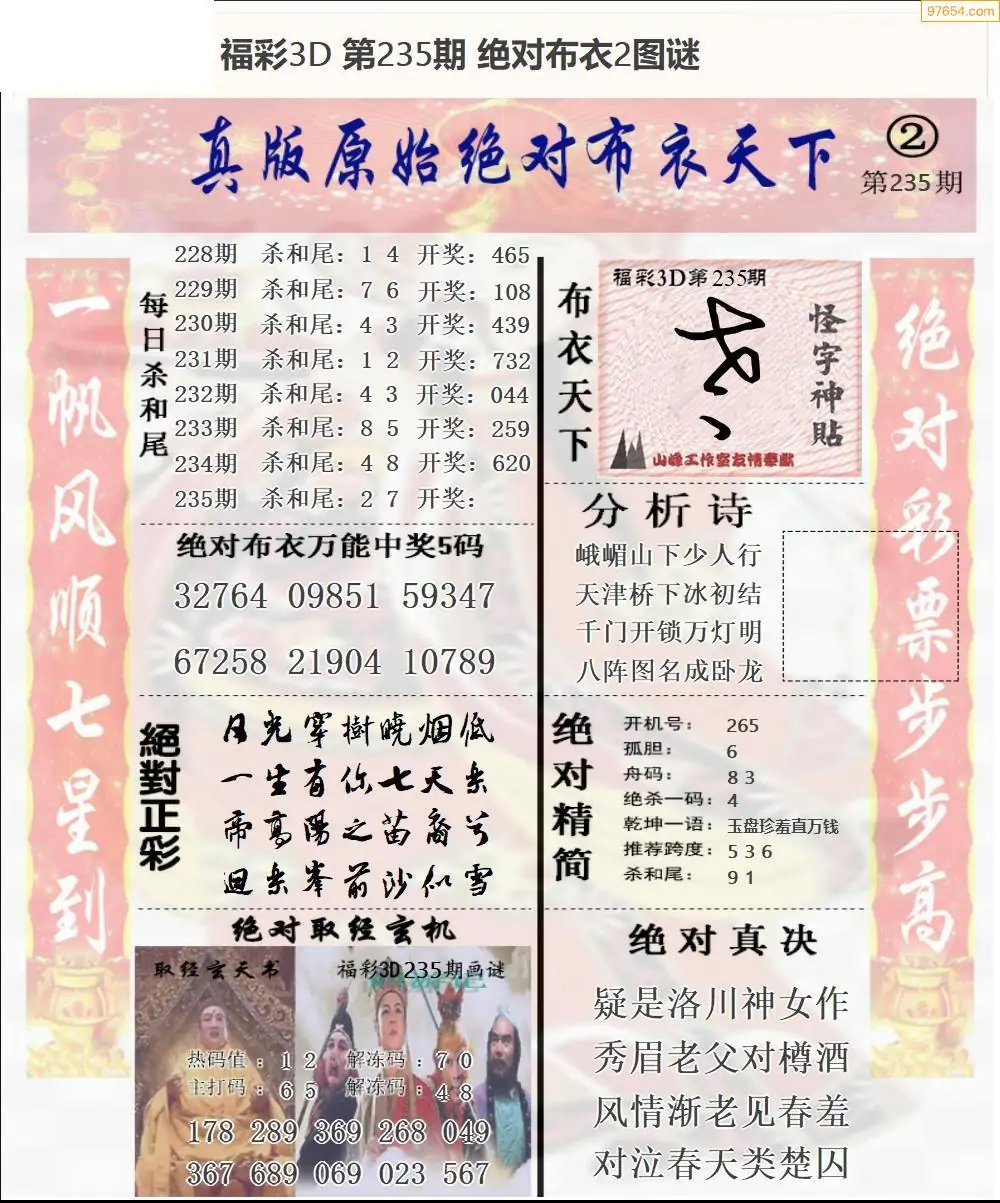 97654.com
福彩3D 第235期 绝对布衣2图谜
真版原始绝对布衣天下
②
第235期
一帆风顺七星到
每日杀和尾
228期 杀和尾：1 4 开奖：465
229期 杀和尾：7 6 开奖：108
230期 杀和尾：4 3 开奖：439
231期 杀和尾：1 2 开奖：732
232期 杀和尾：4 3 开奖：044
233期 杀和尾：8 5 开奖：259
234期 杀和尾：4 8 开奖：620
235期 杀和尾：2 7 开奖：
绝对布衣万能中奖5码
32764 09851 59347
67258 21904 10789
絕對正彩
月光穿樹曉烟低
一生有你七天乐
帝高陽之苗裔兮
迴乐峯前沙似雪
绝对取经玄机
取经玄天书
福彩3D235期画谜
热码值：1 2 解冻码：7 0
主打码：6 5 解冻码：4 8
178 289 369 268 049
367 689 069 023 567
布衣天下
福彩3D第235期
怪字神貼
山峰工作室友情奉献
分析诗
峨嵋山下少人行
天津桥下冰初结
千门开锁万灯明
八阵图名成卧龙
绝对精简
开机号：265
孤胆：6
舟码：8 3
绝杀一码：4
乾坤一语：玉盘珍羞直万钱
推荐跨度：5 3 6
杀和尾：9 1
绝对真决
疑是洛川神女作
秀眉老父对樽酒
风情渐老见春羞
对泣春天类楚囚
绝对彩票步步高